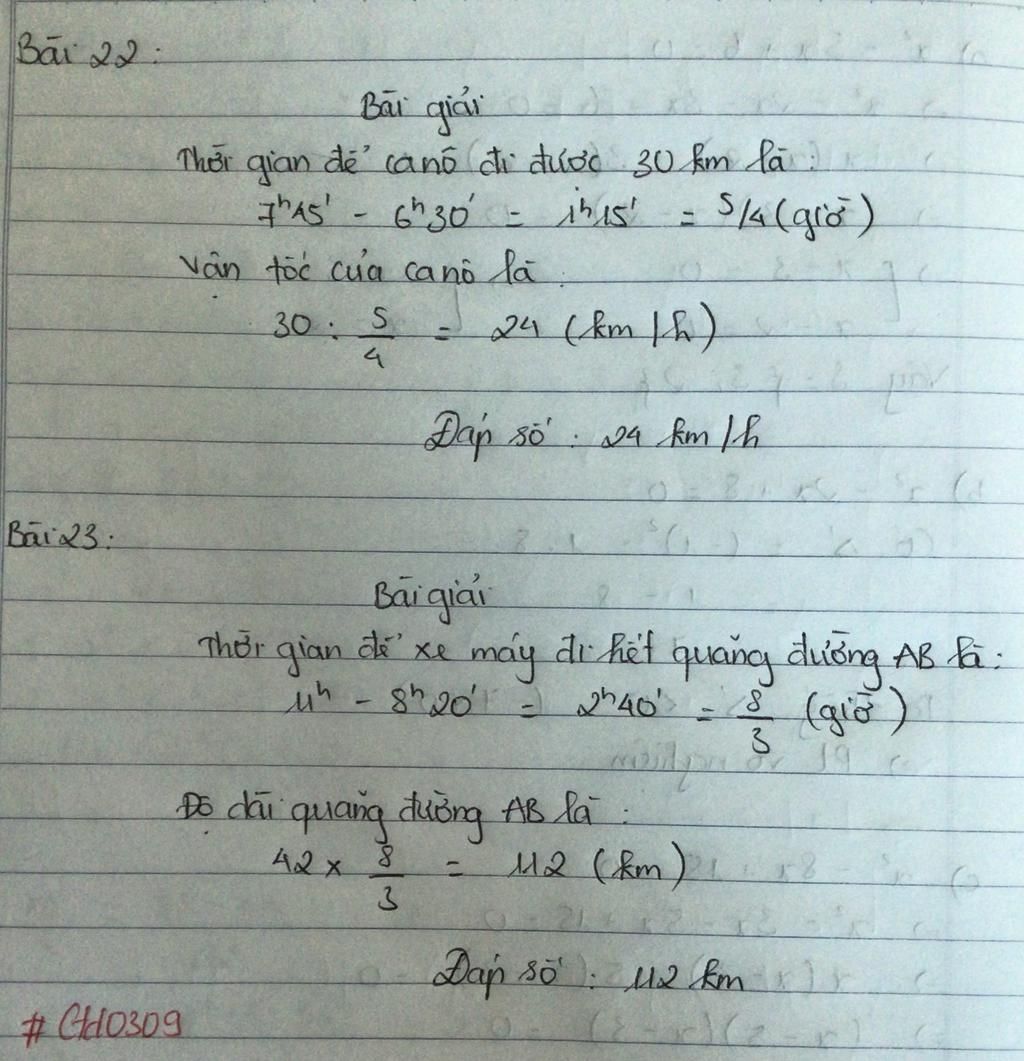 Bài 22:
Bài giải
Thời gian để canô đi được 30 km là:
7h45' - 6h30' = 1h15' = 5/4 (giờ)
Vận tốc của canô là
30 : 5/4 = 24 (km/h)
Đáp số : 24 km/h
Bài 23:
Bài giải
Thời gian để xe máy đi hết quãng đường AB là:
11h - 8h20' = 2h40' = 8/3 (giờ)
Độ dài quãng đường AB là:
42 x 8/3 = 112 (km)
Đáp số : 112 km